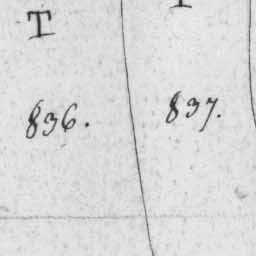 T
836. 837.